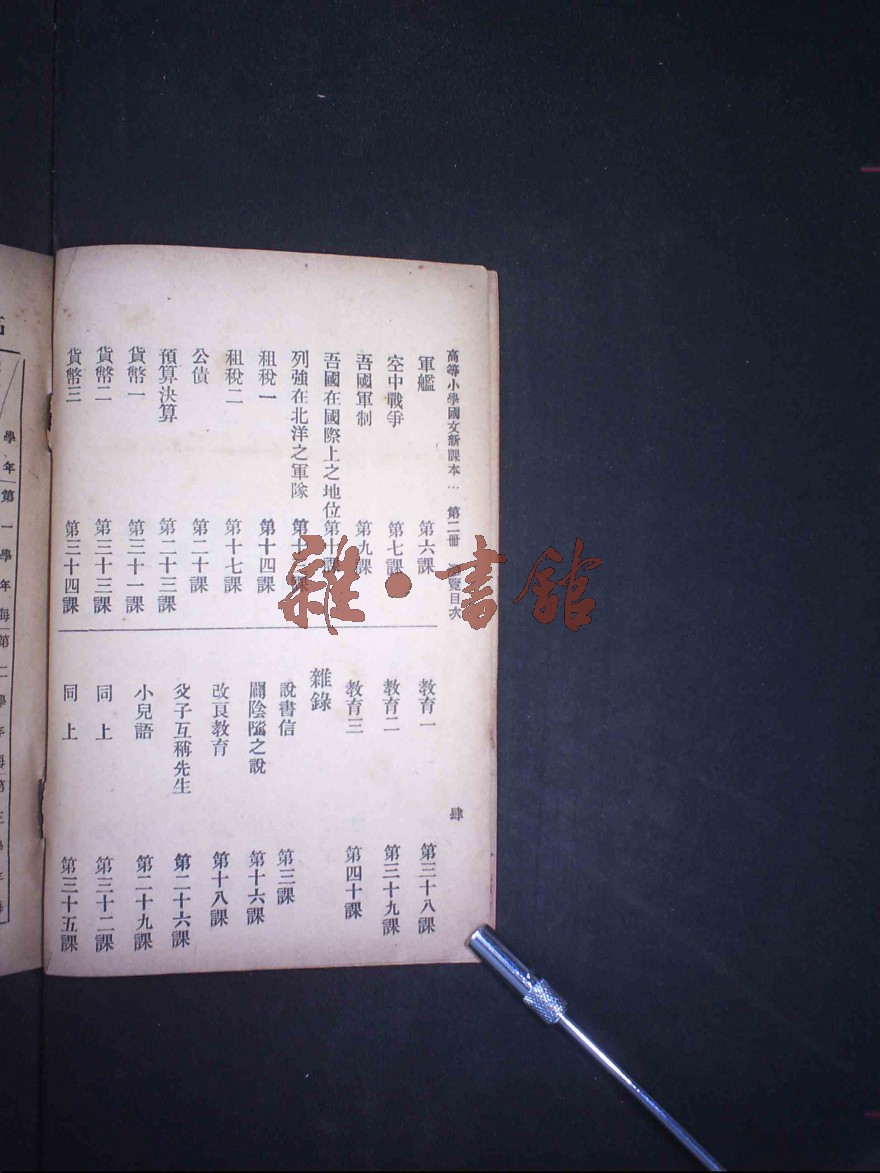 高等小學國文新課本… 第二冊 瀏覽目次 肆
軍艦 第六課
空中戰爭 第七課
吾國軍制 第九課
吾國在國際上之地位 第十課
列強在北洋之軍隊 第十
租稅一 第十四課
租稅二 第十七課
公債 第二十課
預算決算 第二十三課
貨幣一 第三十一課
貨幣二 第三十三課
貨幣三 第三十四課
教育一 第三十八課
教育二 第三十九課
教育三 第四十課
雜錄
說書信 第三課
闢陰隲之說 第十六課
改良教育 第十八課
父子互稱先生 第二十六課
小兒語 第二十九課
同上 第三十二課
同上 第三十五課
學年 第一學年 每 第二學年 每 第三學年 每
雜·書館